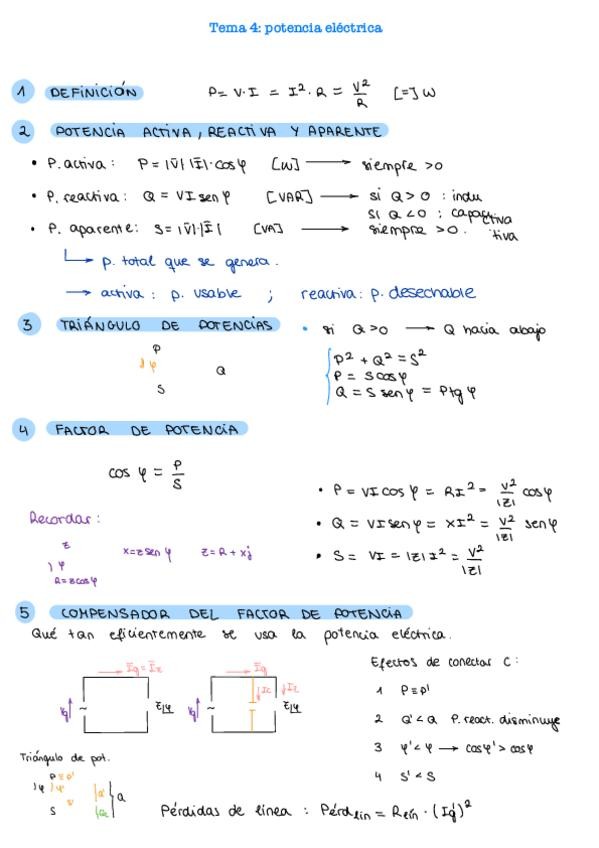 Tema 4: potencia eléctrica
1 DEFINICIÓN P = V·I = I²·R = V²/R [=] W
2 POTENCIA ACTIVA, REACTIVA Y APARENTE
• P. activa: P = |V̄| |Ī|·cosφ [W] → siempre >0
• P. reactiva: Q = VI senφ [VAR] → si Q>0 : indu
si Q<0 : capacitiva
tiva
• P. aparente: S = |V̄|·|Ī| [VA] → siempre >0.
↳ p. total que se genera.
→ activa: p. usable ; reactiva: p. desechable
3 TRIÁNGULO DE POTENCIAS • si Q>0 → Q hacia abajo
P
φ
Q
S
P² + Q² = S²
P = S cosφ
Q = S senφ = P tg φ
4 FACTOR DE POTENCIA
cos φ = P/S
• P = VI cosφ = RI² = V²/|Z| cosφ
• Q = VI senφ = XI² = V²/|Z| senφ
• S = VI = |Z| I² = V²/|Z|
Recordar:
Z
φ
R = Z cosφ
X = Z sen φ Z = R + Xj
5 COMPENSADOR DEL FACTOR DE POTENCIA
Qué tan eficientemente se usa la potencia eléctrica.
Efectos de conectar C:
Īg = Īz
Vg ~ Z|φ
Īg'
Ic Iz
Vg ~ Z|φ
1 P ≡ P'
2 Q' < Q P. react. disminuye
3 φ' < φ → cosφ' > cosφ
4 S' < S
Triángulo de pot.
P ≡ P'
φ φ'
S' Q' Q
S Qc
Pérdidas de línea : Pérd lín = R lín · (Ig')²